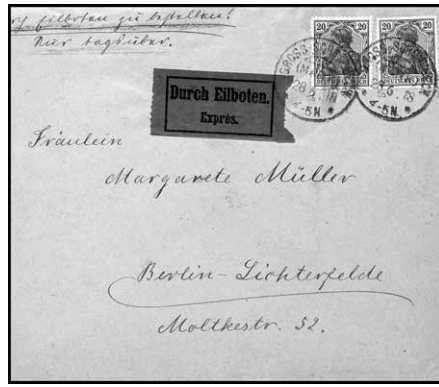 durch Eilboten zu bestellen!
Nur tagsüber.
20 20 20 20
DEUTSCHES REICH
GROSS
4-5N. 4-5N.
Durch Eilboten.
Exprès.
Fräulein
Margarete Müller
Berlin-Lichterfelde
Moltkestr. 52.